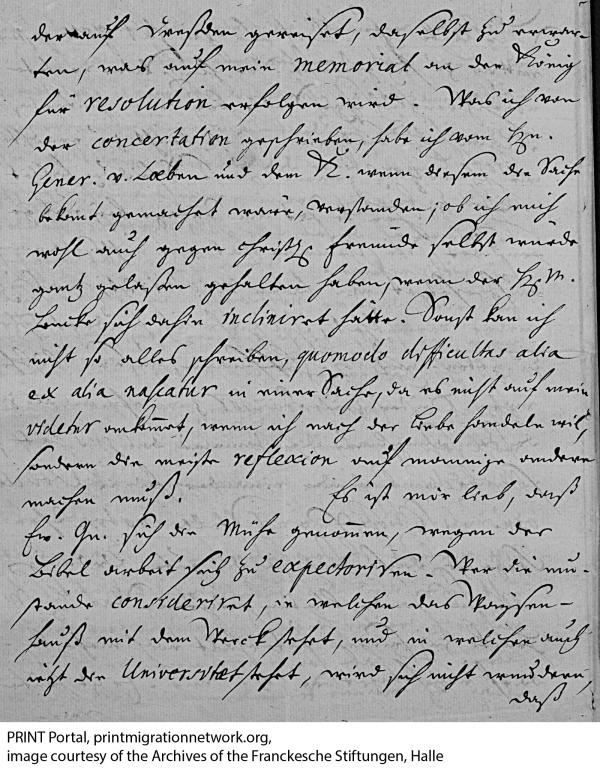 der auf Dreßden gereiset, daselbst zu erwar-
ten, was auf mein memorial an den König
für resolution erfolgen wird. Was ich von
der concertation geschrieben, habe ich vom Hn.
Gener. v. Lœben und dem K. wenn diesem die Sache
bekant gemachet wäre, verstanden; ob ich mich
wohl auch gegen christl. Freunde selbst würde
gantz gelaßen gehalten haben, wenn der H.
sich dahin incliniret hätte. Sonst kan ich
nicht so alles schreiben, quomodo difficultas alia
ex alia nascatur in einer Sache, da es nicht auf mein
videtur ankommet, wenn ich nach der Liebe handeln wil,
sondern die meiste reflexion auf mannige andere
machen muß. Es ist mir lieb, daß
Ew. Gn. sich die Mühe genommen, wegen der
Bibel arbeit sich zu expectoriren. Wer die um-
stände consideriret, in welchen das Waysen-
hauß mit dem Werck stehet, und in welchen auch
jetzt die Universitæt stehet, wird sich nicht wundern,
daß
PRINT Portal, printmigrationnetwork.org,
image courtesy of the Archives of the Franckesche Stiftungen, Halle